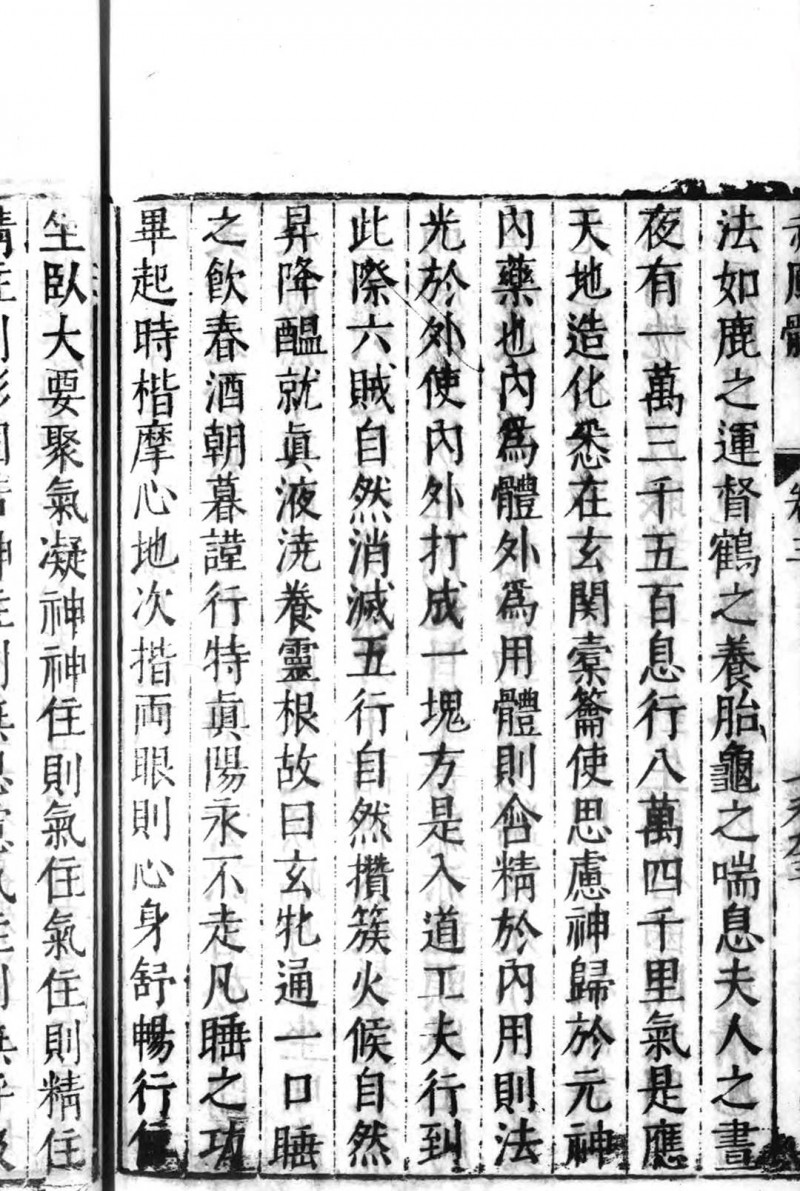 卷三
法如鹿之運督鶴之養胎龜之喘息夫人之晝
夜有一萬三千五百息行八萬四千里氣是應
天地造化悉在玄關橐籥使思慮神歸於元神
內藥也內爲體外爲用體則含精於內用則法
光於外使內外打成一塊方是入道工夫行到
此際六賊自然消滅五行自然攢簇火候自然
昇降醞就眞液澆養靈根故曰玄牝通一口睡
之飲春酒朝暮謹行持眞陽永不走凡睡之功
畢起時楷摩心地次揩両眼則心身舒暢行
坐臥大要聚氣凝神神住則氣住氣住則精住